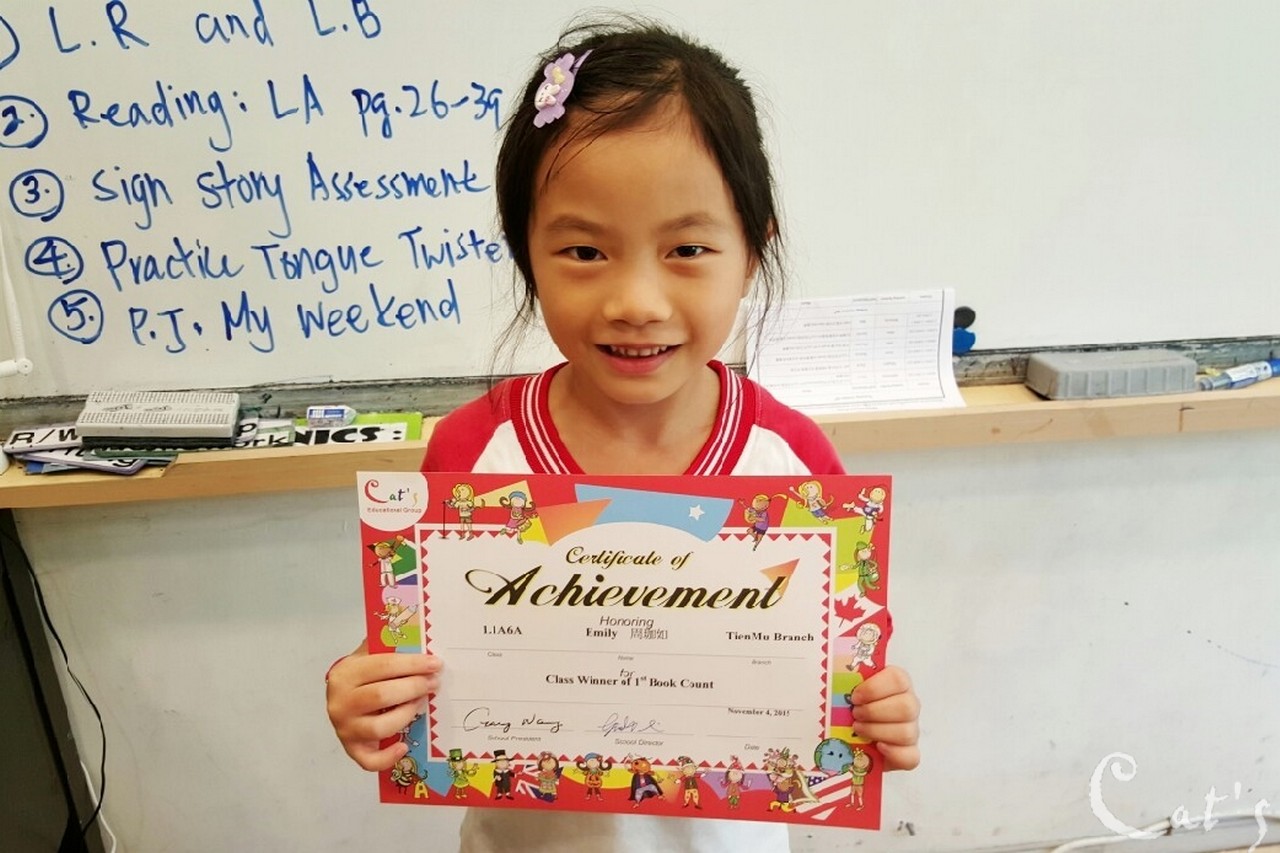 L.R and L.B
2. Reading: LA pg.26-39
3. Sign Story Assessment
4. Practice Tongue Twister
5. P.J. My Weekend
R/W
NICS:
Cat's
Educational Group
Certificate of
Achievement
Honoring
1.1A6A Emily 周珈如 TienMu Branch
Class Name Branch
for
Class Winner of 1st Book Count
November 4, 2015
Craig Wang
School President School Director Date
A
Cat's